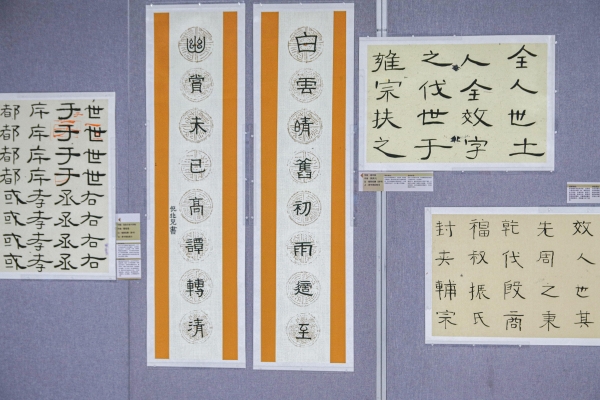 全人世土
人全效字
之伐世于
雍宗扶之
效人世其
先周之東
乾伐殷商
福叔振氏
封夾輔宗
白雲晴舊初雨至
幽賞未已高譚轉清
世世世世右右右右
于于于于丞丞丞丞
庠庠庠庠孝孝孝孝
都都都都或或或或